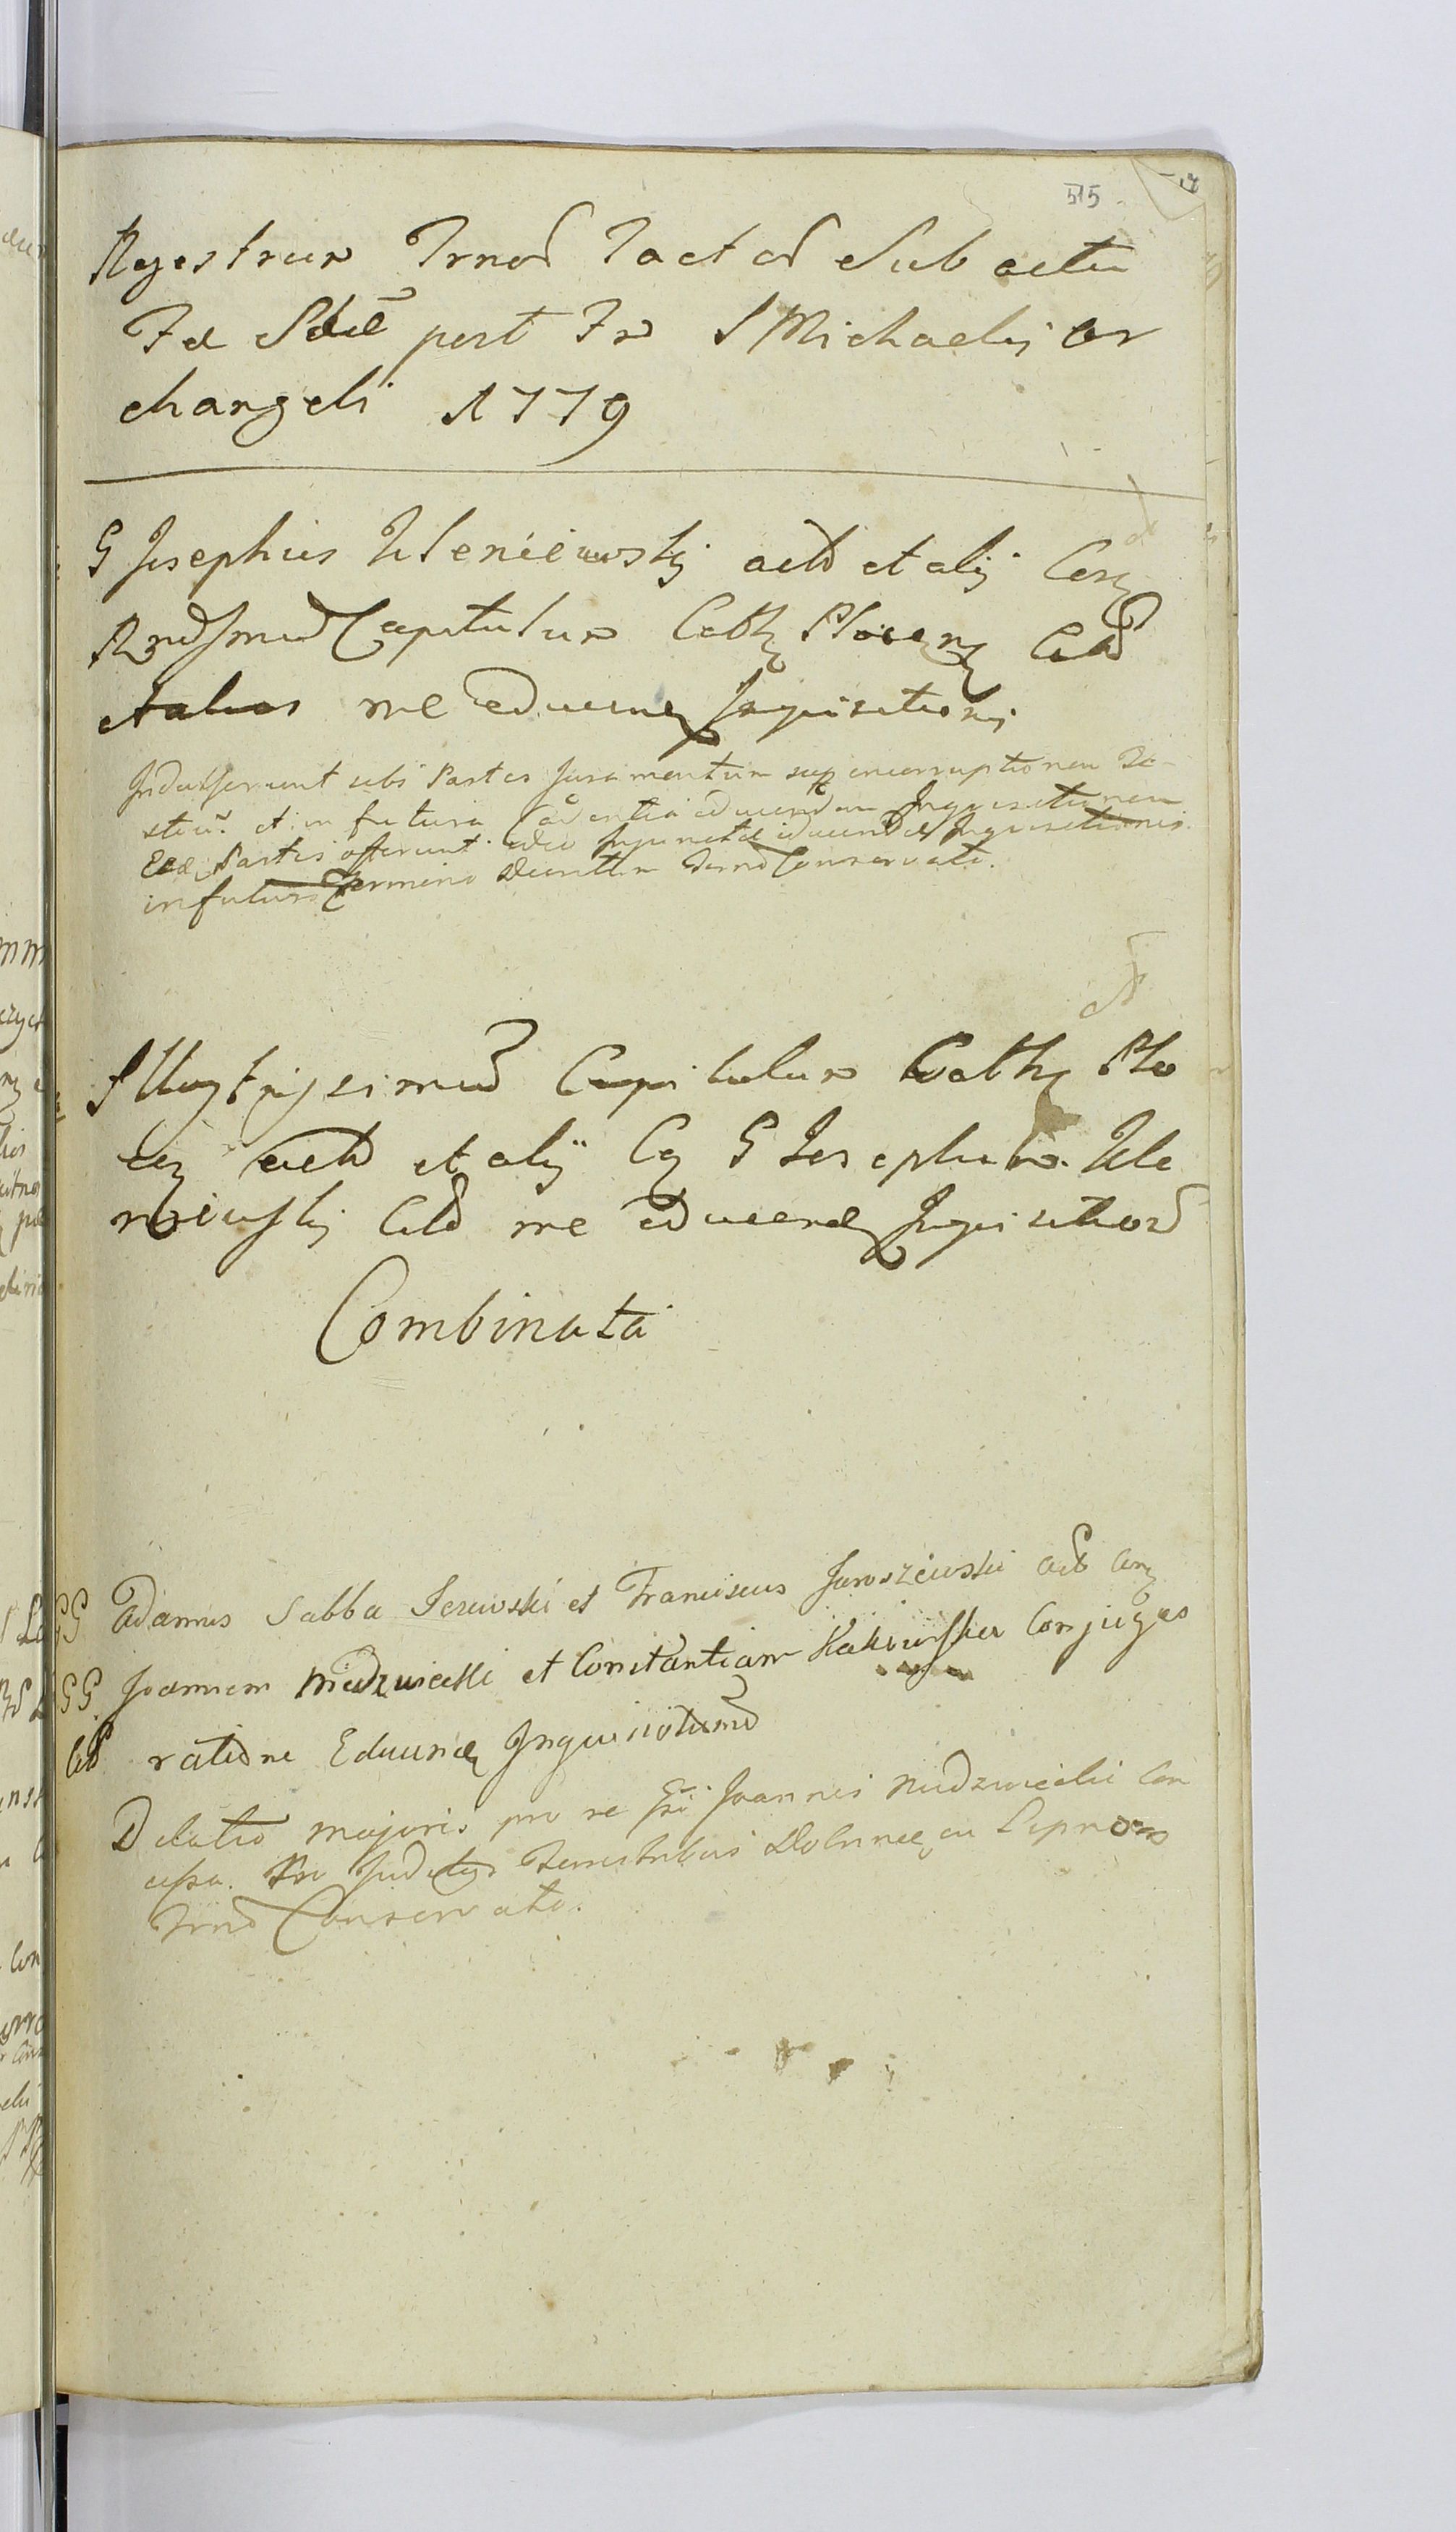 515
Regestrum Trnor Tact or Sub actu
Fa Sda post Fm S Michaelis ar
changeli 1779
G Josephus Uleniewski act et alij Con
Rndsmum Capitulum Cath Plocen Citt
et alios rne educend Inquisitionis
Indulserunt sibi Partes Juramentum super incorruptionem Te
stium et in futura Cadentia educendam Inquisitionem
Eaed Partes offerunt. ideo Injunctae educendae Inquisitionis
in futuro Termino Decretum Termo Conservato.
Illustrissimum Capitulum Cath Plo
cen act et alij C G Josephum Ule
niewski Citt rne educend Inquisition
Combinata
GG Adamus Sabba Jerewski et Franciscus Jaroszewski act Con
GG Joannem Niedzwiecki et Constantiam Kakowska Conjuges
Citt ratione Educend Inquisitionum
Dilatio majoris pro re Gsi Joannis Niedzwiecki Con
cessa. Pro Judicijs Terrestribus Dobrinen in Lipno
Trno Conservato.